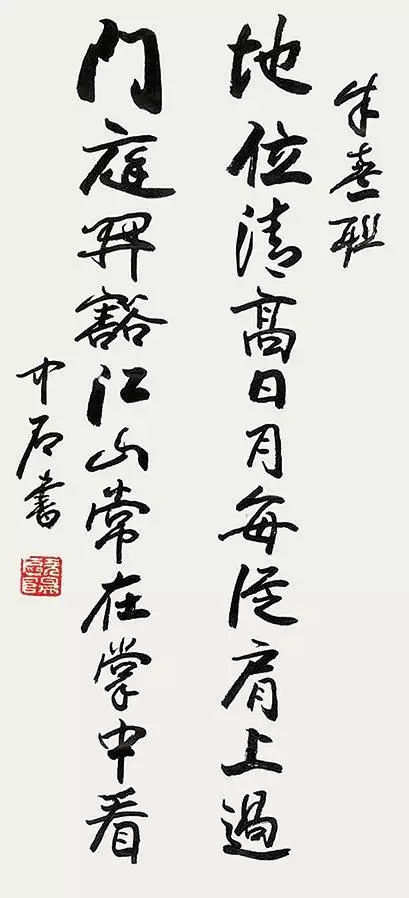 朱熹联
地位清高日月每从肩上過
门庭開豁江山常在掌中看
中石书